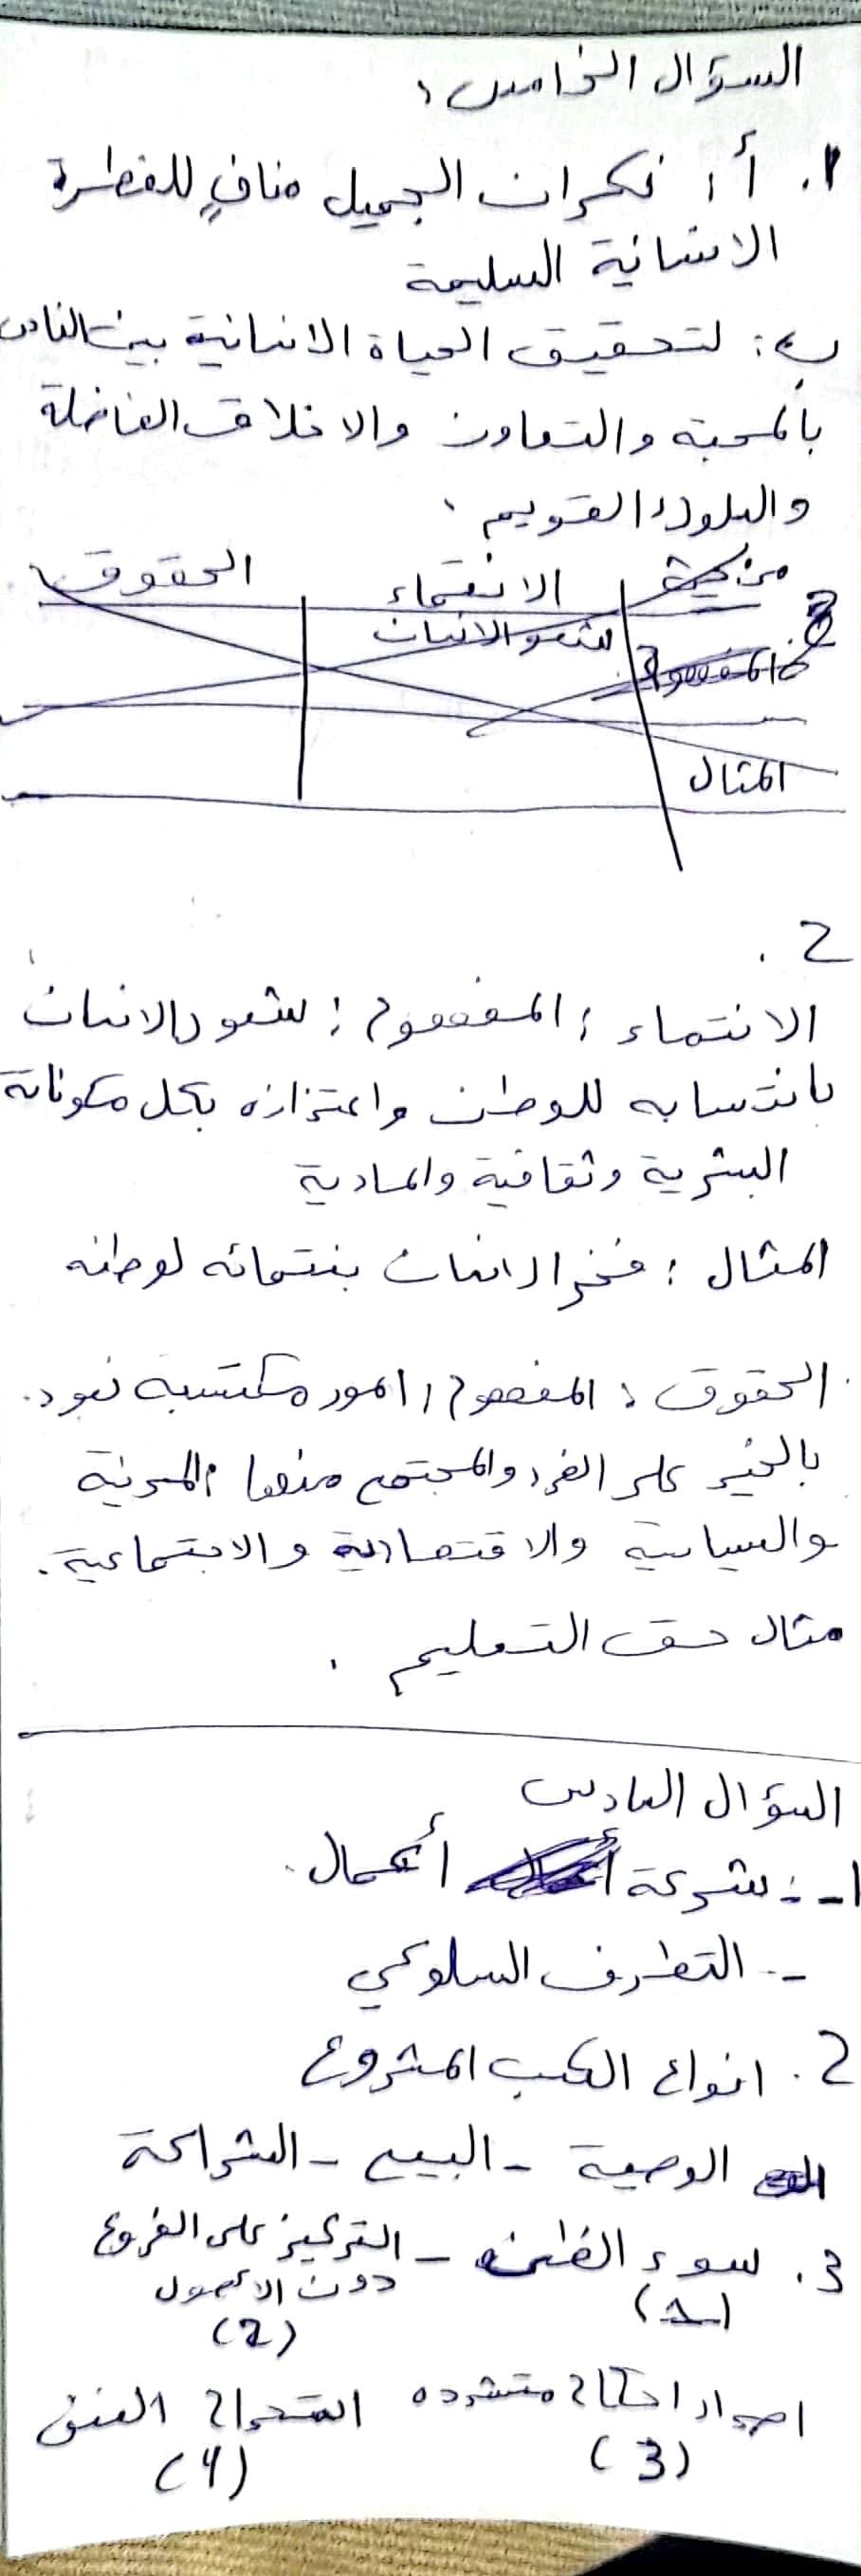 السؤال الخامس :
1. أ : نكران الجميل منافٍ للفطرة
الانسانية السليمة
ب : لتحقيق الحياة الانسانية بين الناس
بالمحبة والتعاون والاخلاق الفاضلة
والسلوك القويم .
من حيث الانتماء الحقوق
2. المفهوم شعور الانسان
المثال
2 .
الانتماء : المفهوم : شعور الانسان
بانتسابه للوطن واعتزازه بكل مكوناته
البشرية وثقافية والمادية
المثال : فخر الانسان بنتمائه لوطنه
الحقوق : المفهوم : امور مكتسبة تعود
بالخير على الفرد والمجتمع منها المدنية
والسياسية والاقتصادية والاجتماعية .
مثال حق التعليم .
السؤال السادس
1- - شركة أعمال .
- التطرف السلوكي
2 . انواع الكسب المشروع
الوصية - البيع - الشراكة
3 . سوء الظن - التركيز على الفروع
دون الاصول
(1) (2)
اصدار احكام متشدده استخدام العنف
(3) (4)